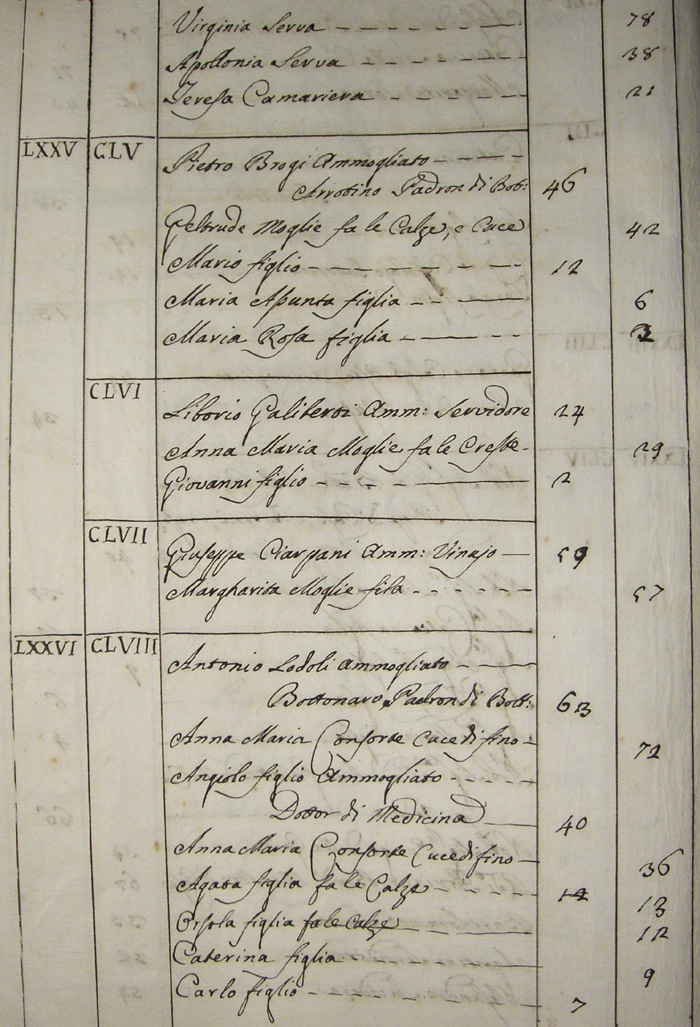 Virginia Serva 78
Apollonia Serva 38
Teresa Camariera 21
LXXV CLV Pietro Brogi Ammogliato
Arrotino Padron di Bot: 46
Geltrude Moglie fa le Calze, e Cuce 42
Mario figlio 12
Maria Asunta figlia 6
Maria Rosa figlia
CLVI Liborio Galiberti Amm: Servidore 24
Anna Maria Moglie fa le Creste 29
Giovanni figlio 2
CLVII Giuseppe Ciarpani Amm: Vinajo 59
Margharita Moglie fila 57
LXXVI CLVIII Antonio Lodoli Ammogliato
Bottonaro, Padron di Bott: 63
Anna Maria Consorte Cuce di fino 72
Angiolo figlio Ammogliato
Dottor di Medicina 40
Anna Maria Consorte Cuce di fino 36
Agata figlia fa le Calze 14 13
Orsola figlia fa le Calze 12
Caterina figlia 9
Carlo figlio 7